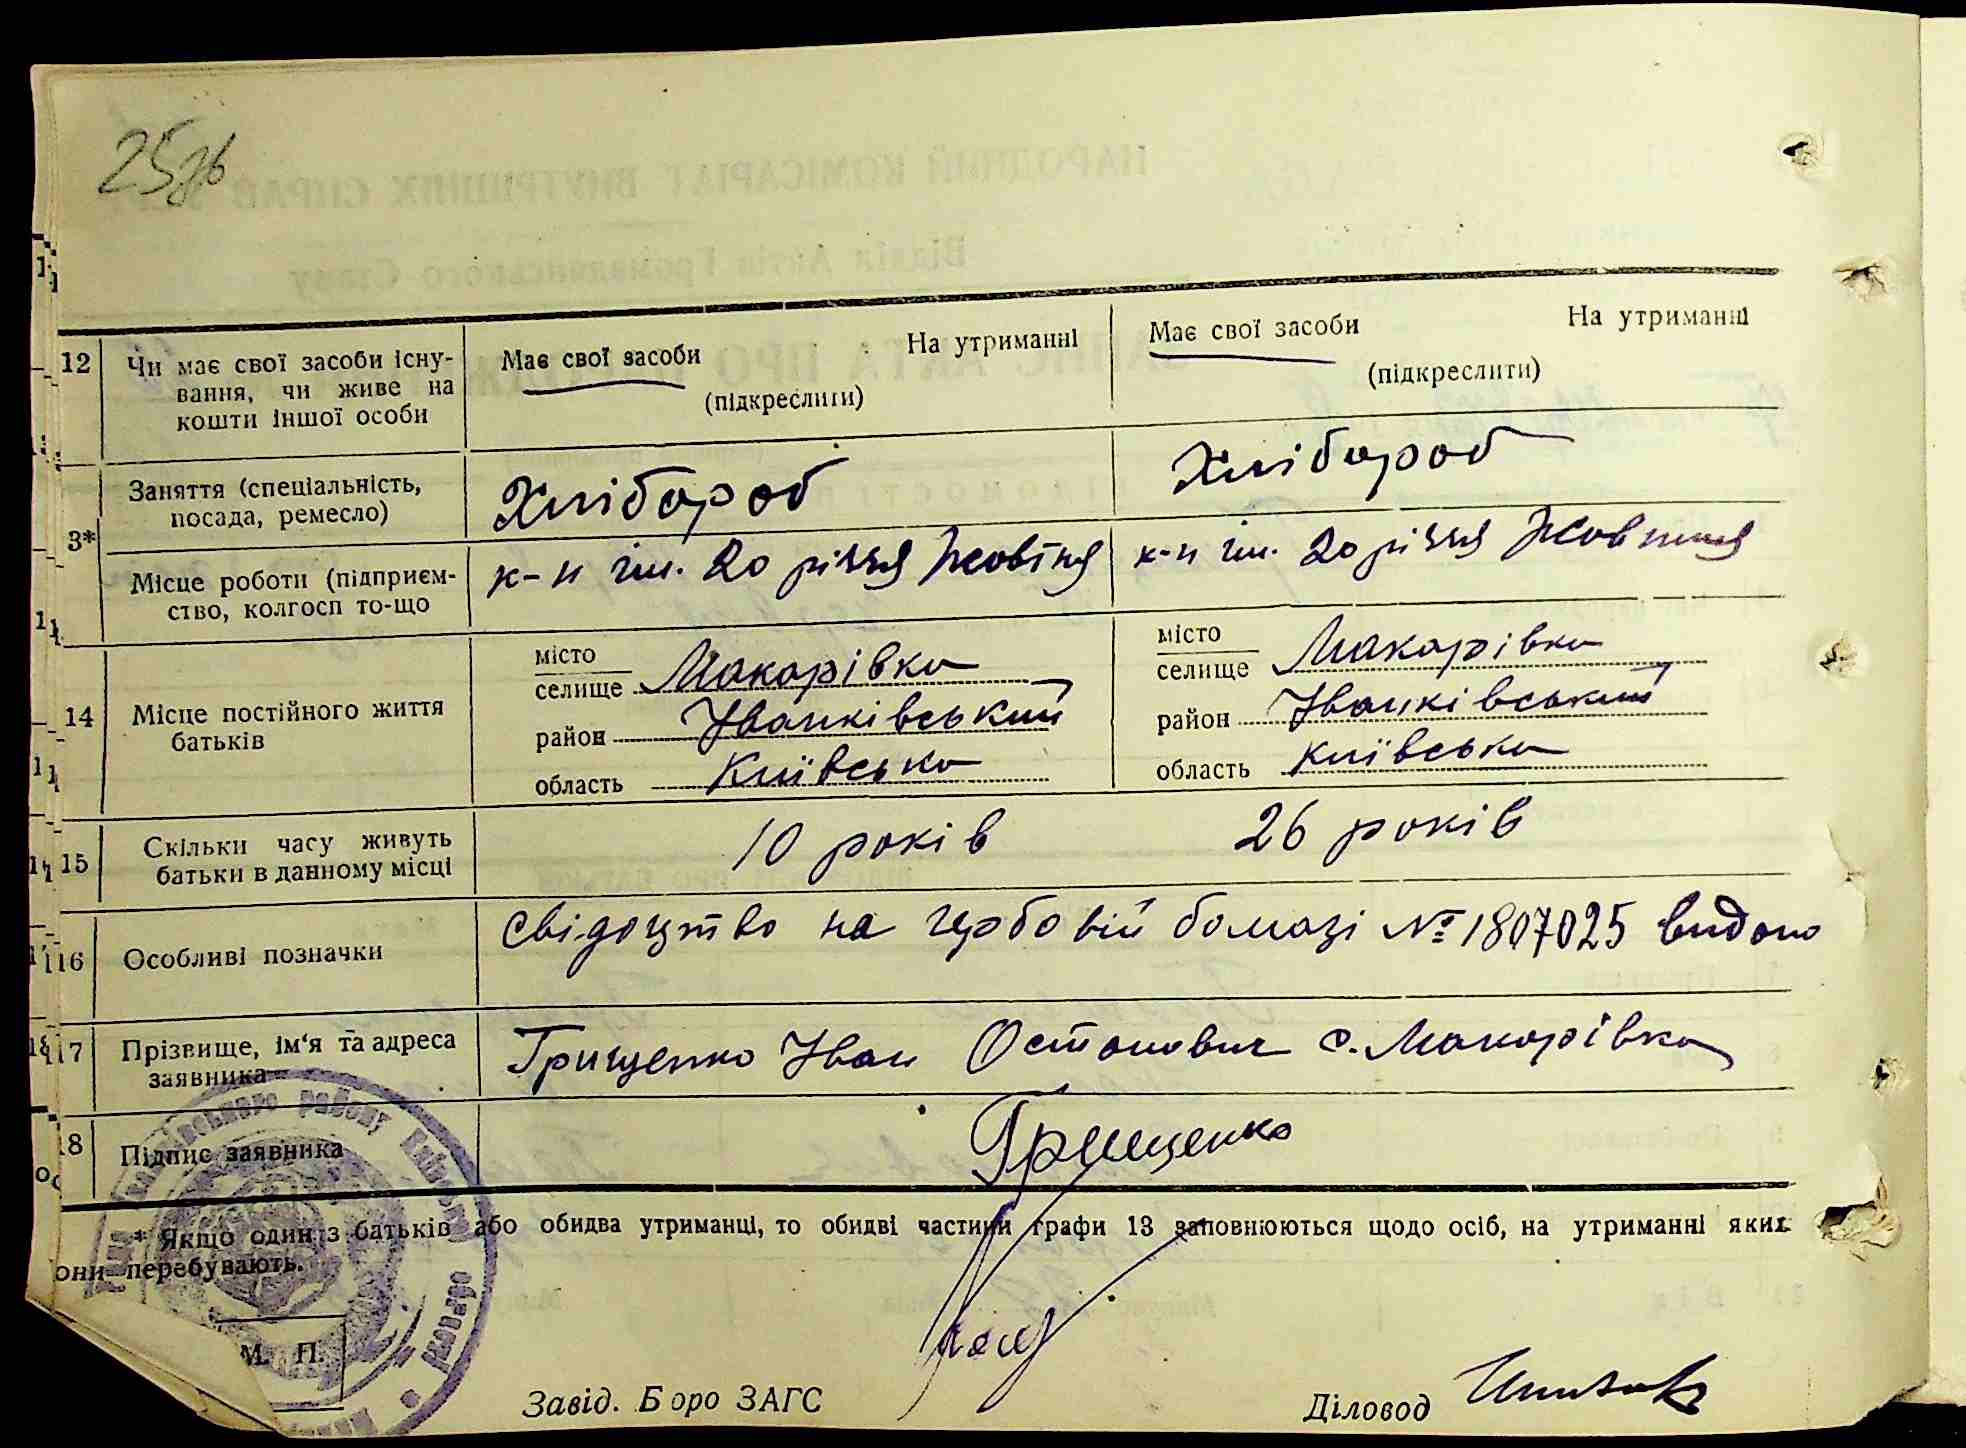 25
12 Чи має свої засоби існу-
вання, чи живе на
кошти іншої особи
Має свої засоби На утриманні
(підкреслити)
Має свої засоби На утриманні
(підкреслити)
3*
Заняття (спеціальність,
посада, ремесло)
Хлібороб
Хлібороб
Місце роботи (підприєм-
ство, колгосп то-що
к-п ім. 20 річчя Жовтня
к-п ім. 20 річчя Жовтня
14 Місце постійного життя
батьків
місто
селище Макарівка
район Іванківський
область Київська
місто
селище Макарівка
район Іванківський
область Київська
15 Скільки часу живуть
батьки в данному місці
10 років
26 років
16 Особливі позначки
свідоцтво на гербовій бомазі № 1807025 видано
17 Прізвище, ім'я та адреса
заявника
Грищенко Іван Остапович с. Макарівка
18 Підпис заявника
Грищенко
* Якщо один з батьків або обидва утриманці, то обидві частини графи 13 заповнюються щодо осіб, на утриманні яких
они перебувають.
М. П.
Завід. Бюро ЗАГС
Діловод